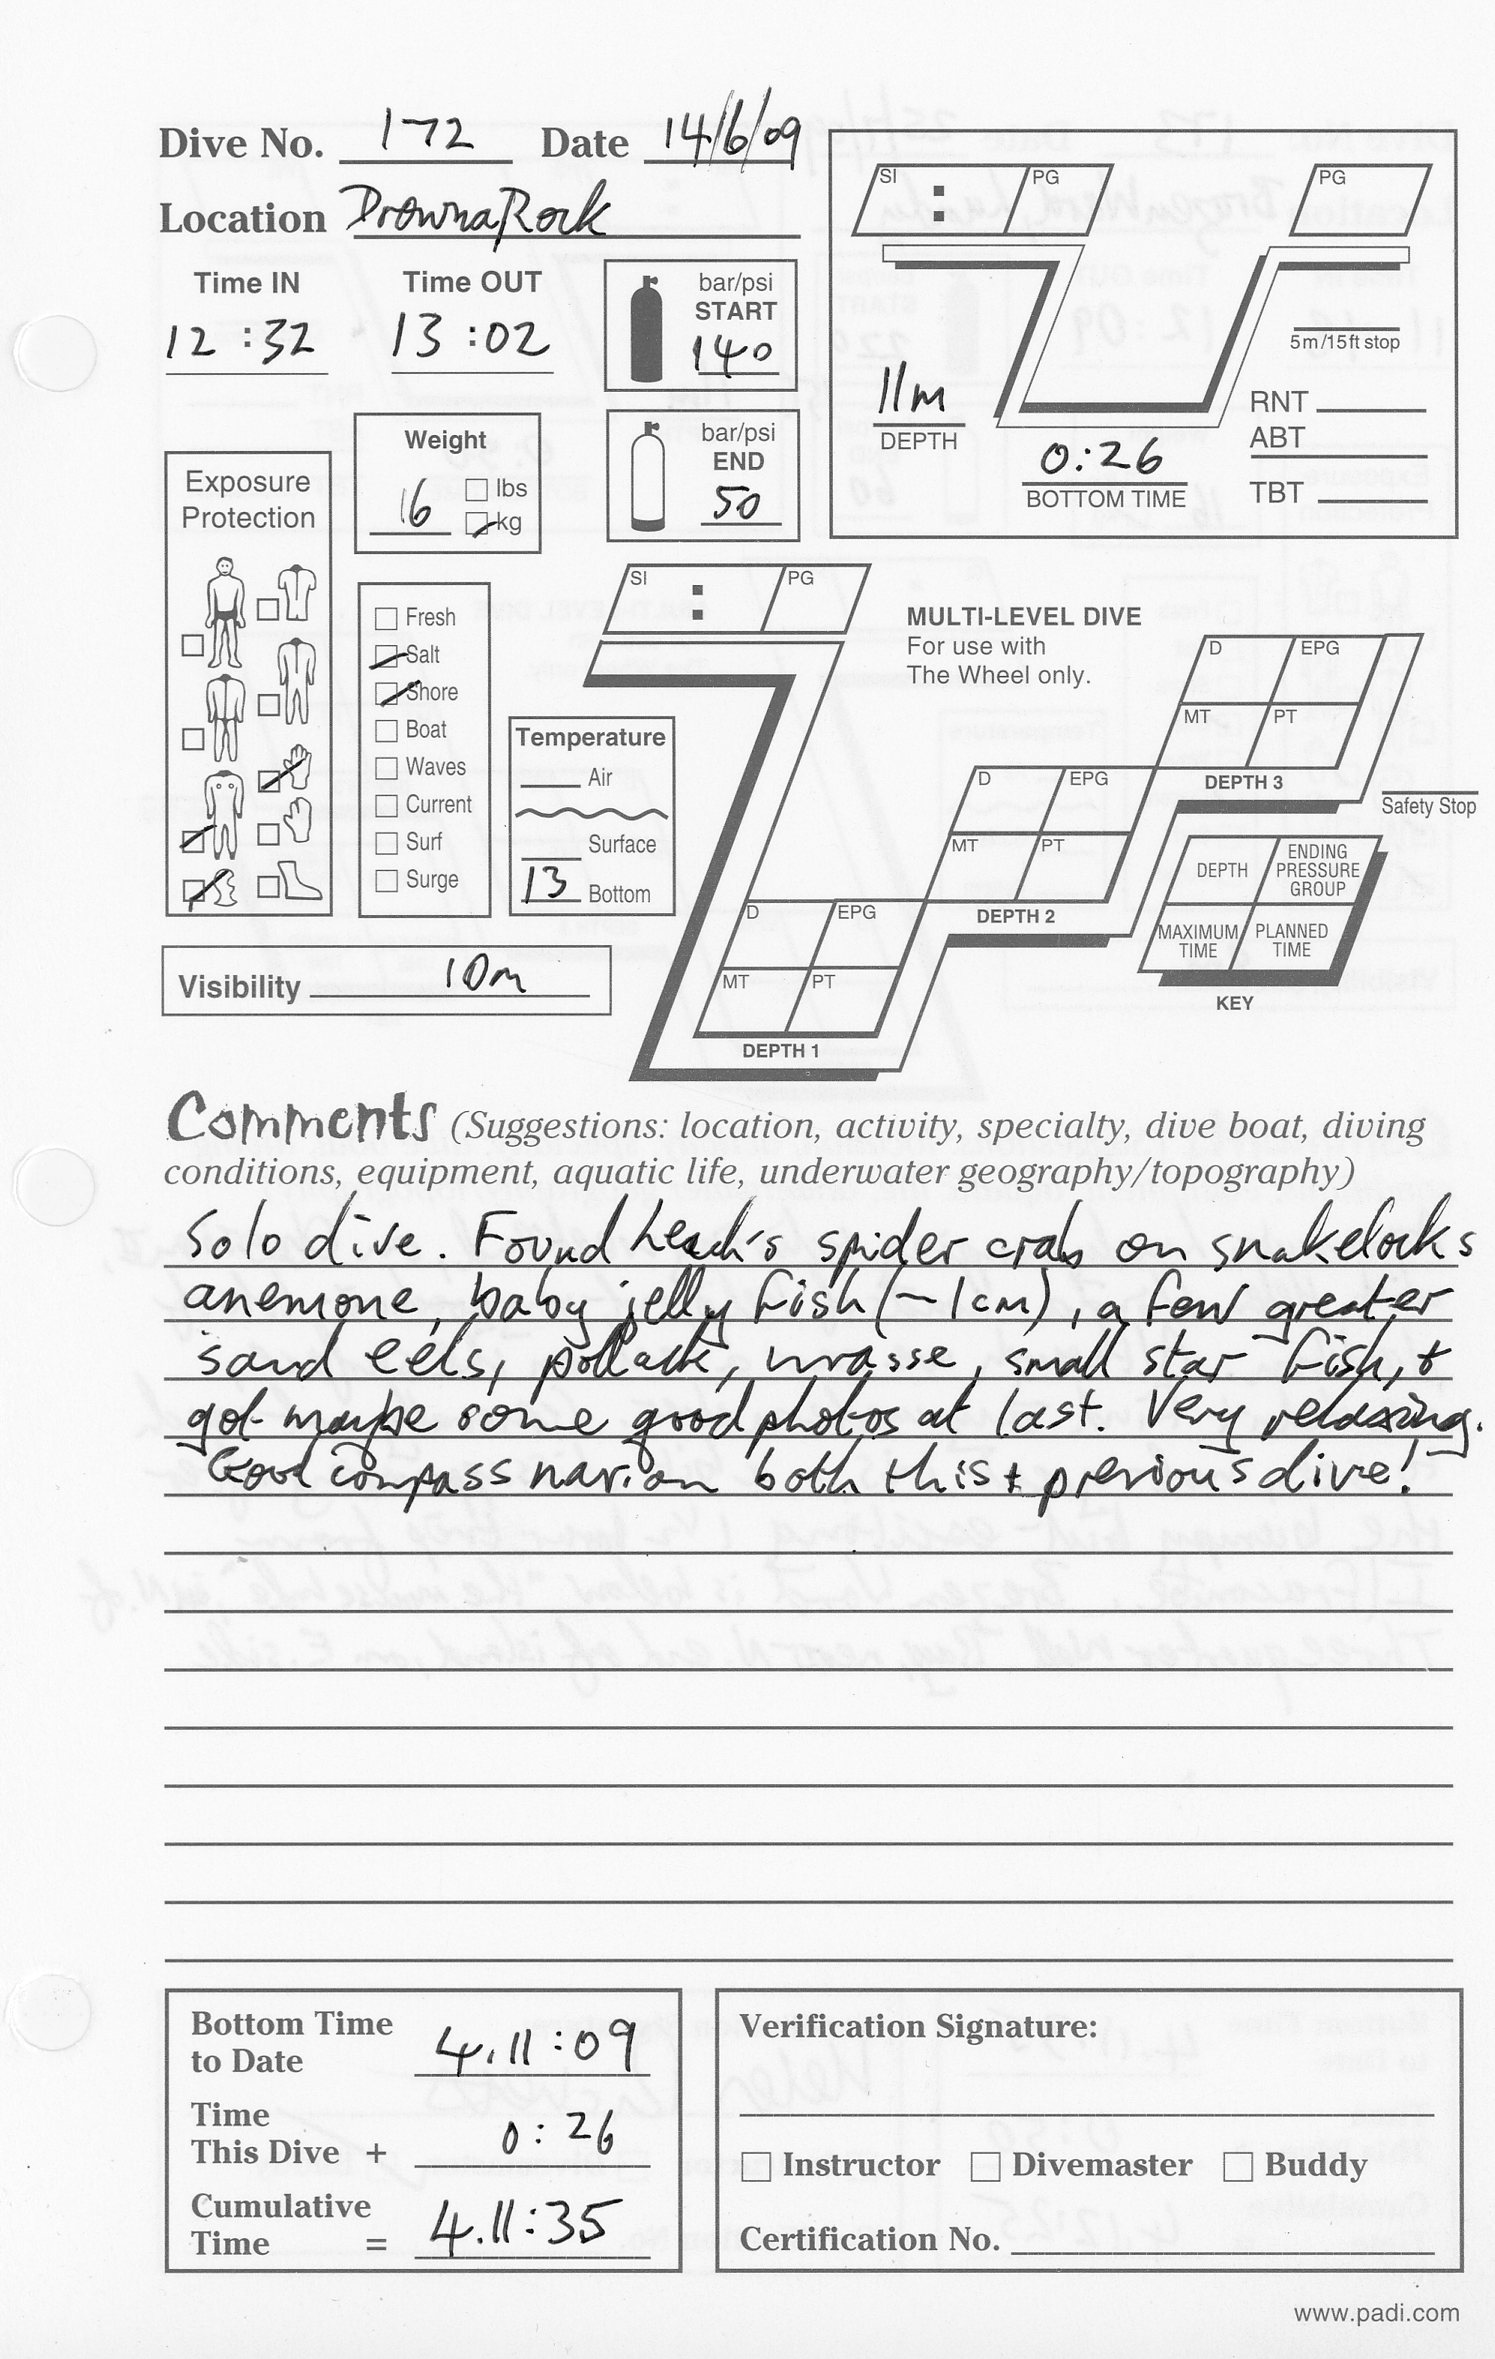 Dive No. 172 Date 14/6/09
Location Drawna Rock
Time IN Time OUT
12:32 13:02
bar/psi
START
140
bar/psi
END
50
Weight
16 lbs
kg
Exposure
Protection
Fresh
Salt
Shore
Boat
Waves
Current
Surf
Surge
Temperature
Air
Surface
13 Bottom
Visibility 10m
SI : PG PG
5m/15ft stop
11m
DEPTH
0:26
BOTTOM TIME
RNT
ABT
TBT
SI : PG
MULTI-LEVEL DIVE
For use with
The Wheel only.
D EPG
MT PT
DEPTH 3
Safety Stop
D EPG
MT PT
DEPTH 2
D EPG
MT PT
DEPTH 1
DEPTH ENDING PRESSURE GROUP
MAXIMUM TIME PLANNED TIME
KEY
Comments (Suggestions: location, activity, specialty, dive boat, diving
conditions, equipment, aquatic life, underwater geography/topography)
Solo dive. Found Leach's spider crab on snakelocks
anemone, baby jelly fish (~1cm), a few greater
sand eels, pollack, wrasse, small star fish, +
got maybe some good photos at last. Very relaxing.
Good compass navion both this + previous dive!
Bottom Time
to Date 4.11:09
Time
This Dive + 0:26
Cumulative
Time = 4.11:35
Verification Signature:
Instructor Divemaster Buddy
Certification No.
www.padi.com